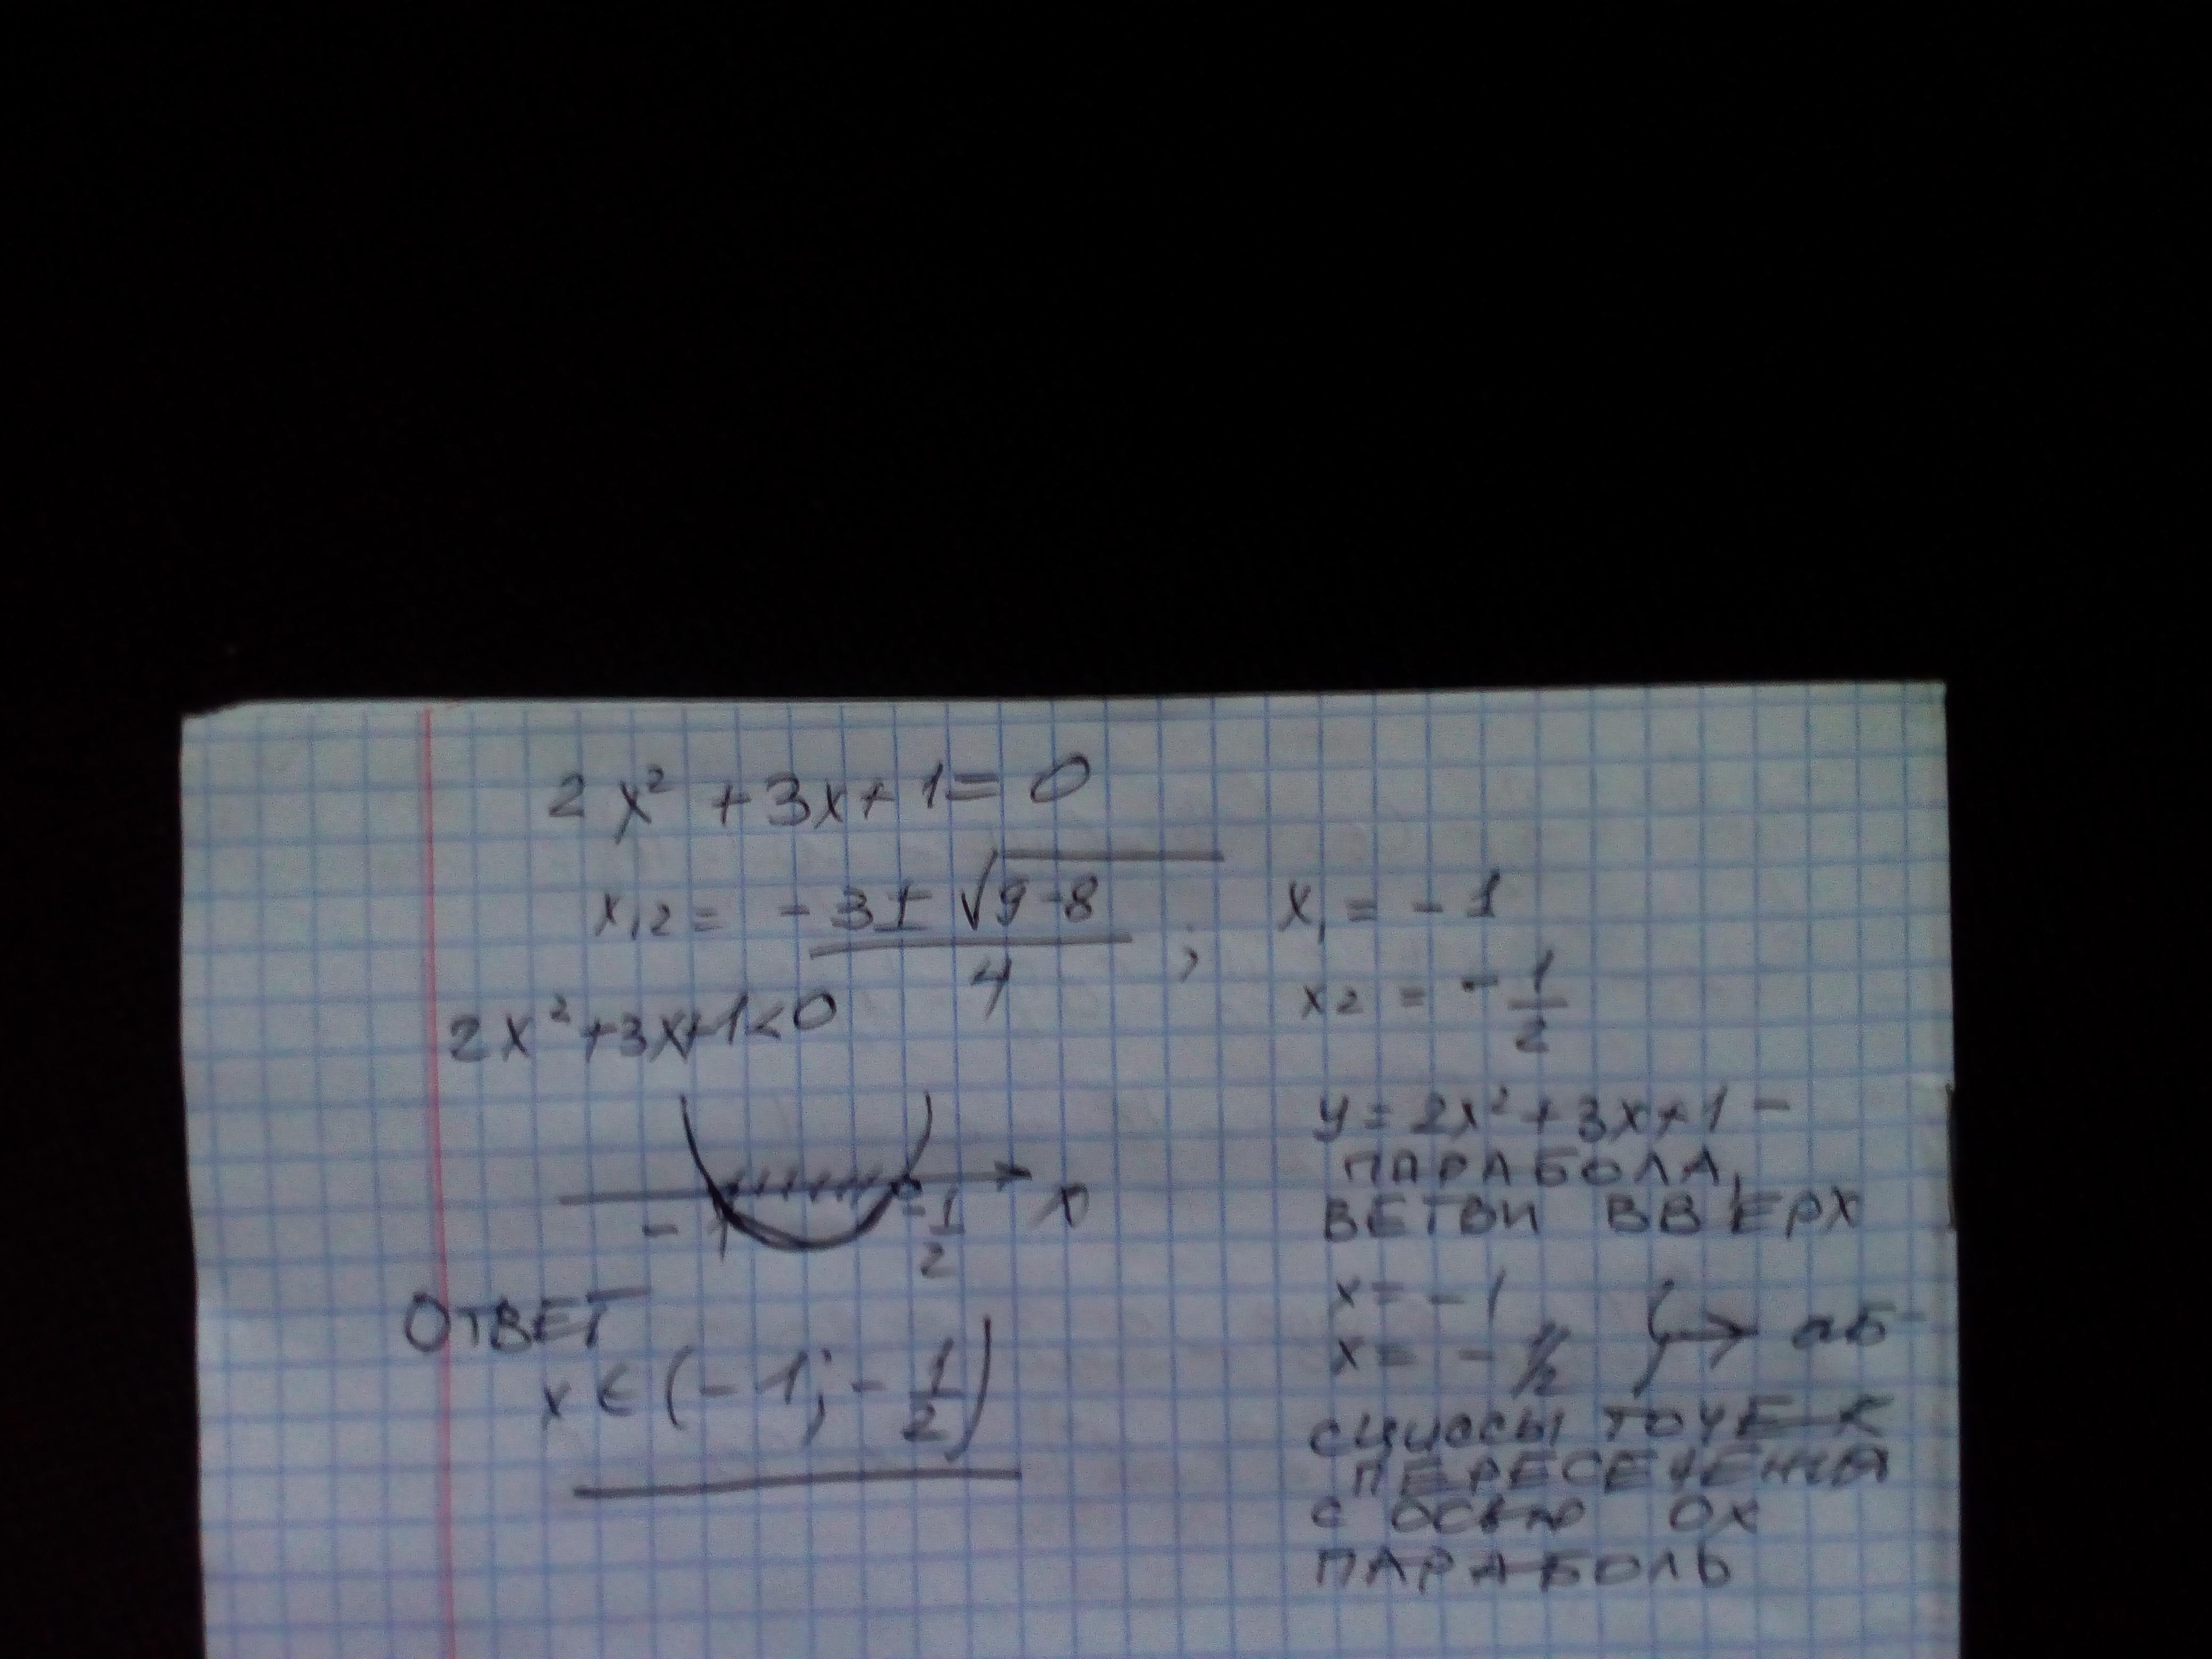 2x² + 3x + 1 = 0
x₁₂ = (-3 ± √(9-8)) / 4 ; x₁ = -1
x₂ = -1/2
2x² + 3x + 1 < 0
-1 -1/2 x
ОТВЕТ
x ∈ (-1; -1/2)
y = 2x² + 3x + 1 –
ПАРАБОЛА,
ВЕТВИ ВВЕРХ
x = -1
x = -1/2 } → аб-
сциссы ТОЧЕК
ПЕРЕСЕЧЕНИЯ
с осью Ox
ПАРАБОЛЬ